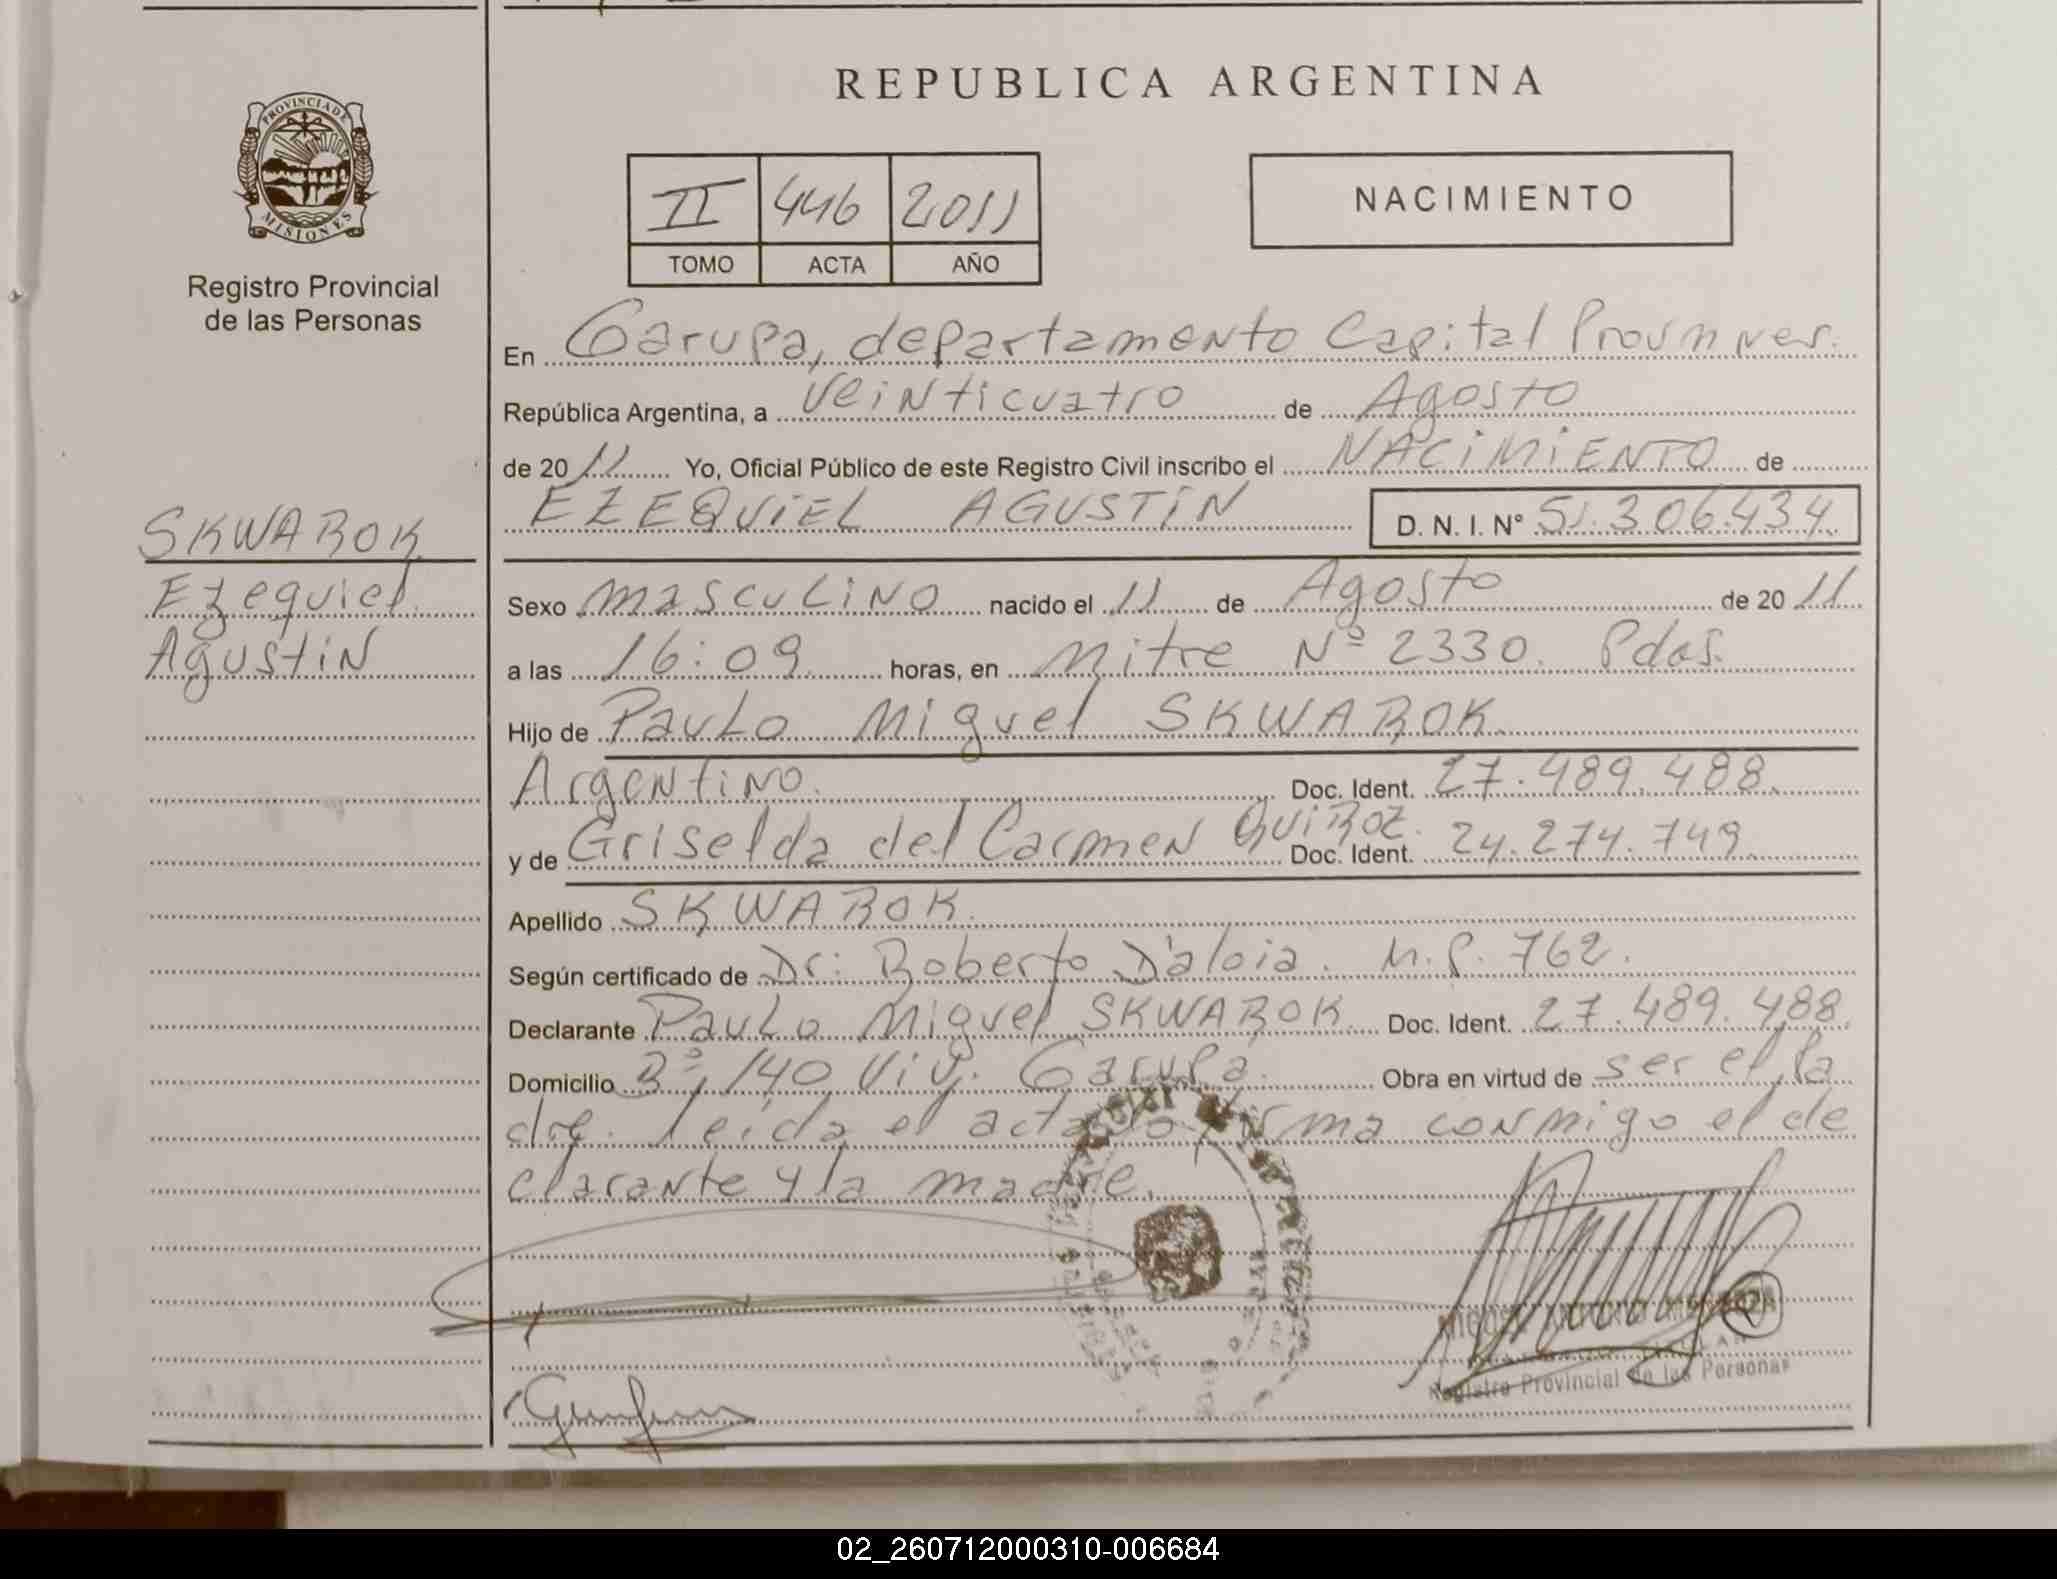 REPUBLICA ARGENTINA
PROVINCIA DE MISIONES
Registro Provincial
de las Personas
II 446 2011
TOMO ACTA AÑO
NACIMIENTO
En Garupa, departamento Capital
República Argentina, a veinticuatro de Agosto
de 2011 Yo, Oficial Público de este Registro Civil inscribo el NACIMIENTO de
EZEQUIEL AGUSTIN D. N. I. N° 51.306.434
SKWAROK
Ezequiel
Agustin
Sexo masculino nacido el 11 de Agosto de 2011
a las 16:09 horas, en Mitre Nº 2330. Pdas.
Hijo de Paulo Miguel SKWAROK
Argentino. Doc. Ident. 27.489.488.
y de Griselda del Carmen QUIROZ. Doc. Ident. 24.274.749
Apellido SKWAROK.
Según certificado de Dr: Roberto D'aloia. M.P. 762.
Declarante Paulo Miguel SKWAROK Doc. Ident. 27.489.488.
Domicilio Bº 140 Viv. Garupa. Obra en virtud de ser el Pa
dre. leída el acta firma conmigo el de
clarante y la madre.
Registro Provincial de las Personas
02_260712000310-006684